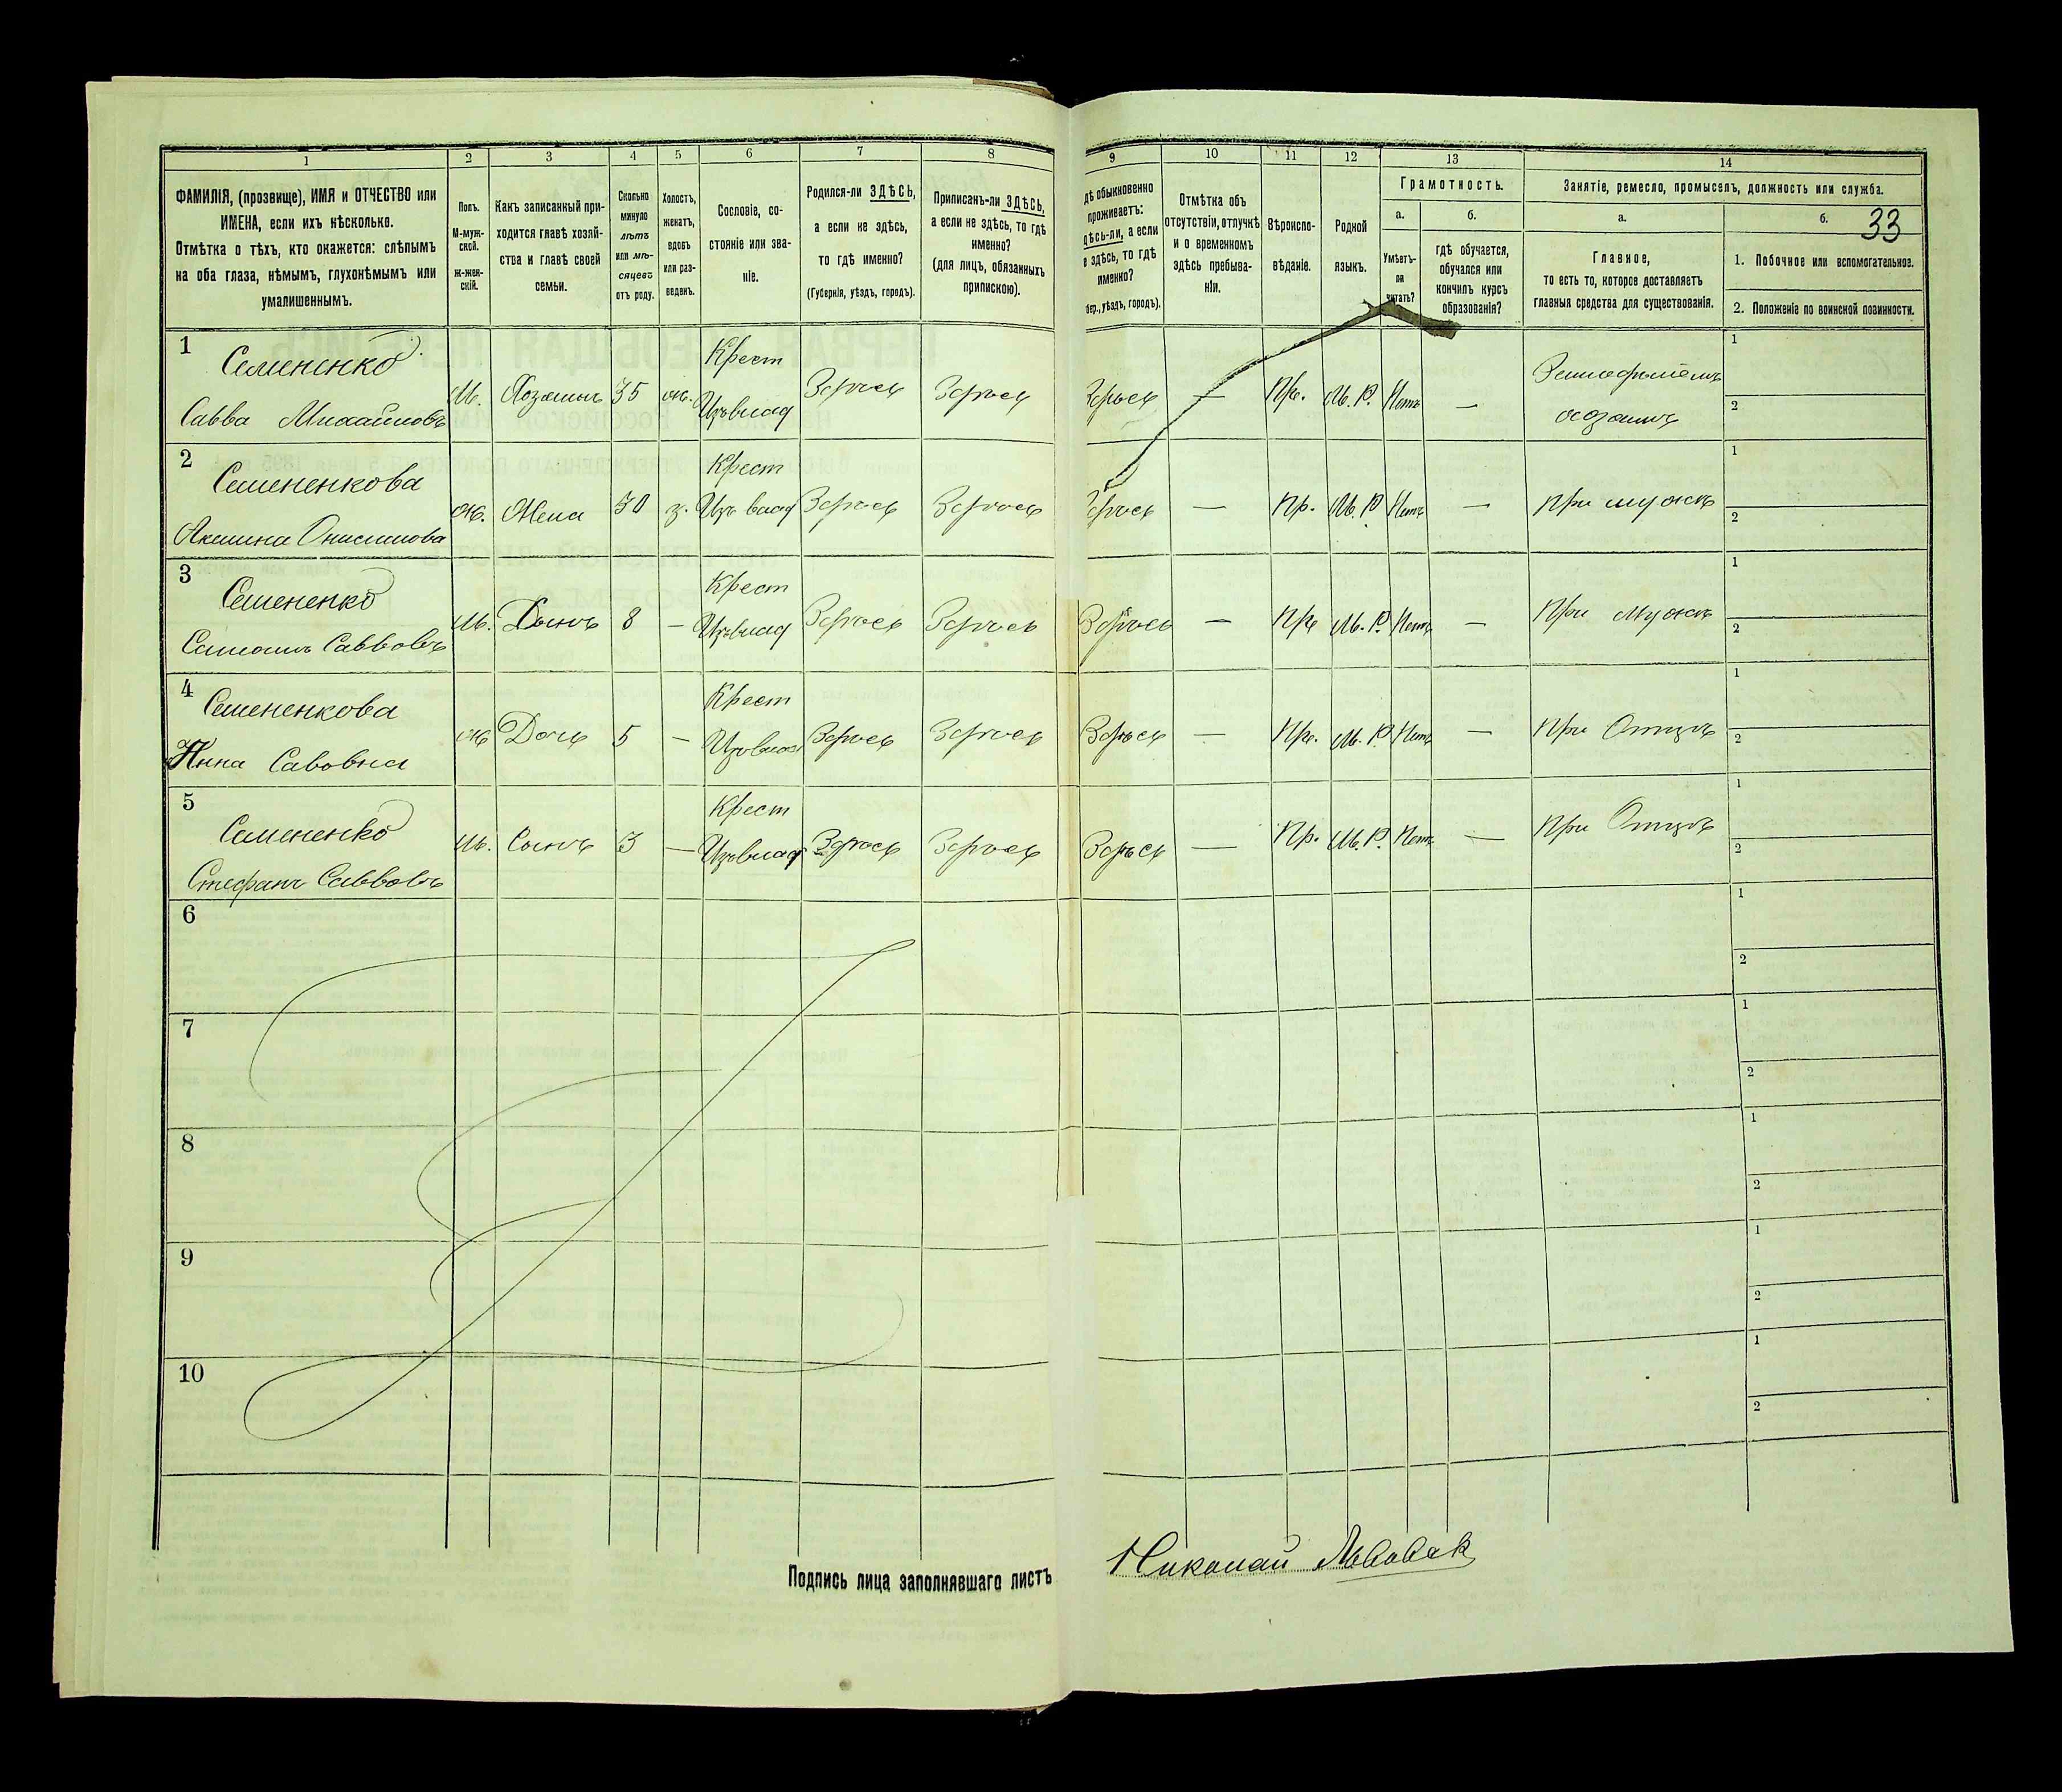 1
2
3
4
5
6
7
8
9
10
11
12
13
14
33
ФАМИЛІЯ, (прозвище), ИМЯ и ОТЧЕСТВО или
ИМЕНА, если ихъ нѣсколько.
Отмѣтка о тѣхъ, кто окажется: слѣпымъ
на оба глаза, нѣмымъ, глухонѣмымъ или
умалишеннымъ.
Полъ.
М-муж-
ской.
Ж-жен-
скій.
Какъ записанный при-
ходится главѣ хозяй-
ства и главѣ своей
семьи.
Сколько
минуло
лѣтъ
или мѣ-
сяцевъ
отъ роду.
Холостъ,
женатъ,
вдовъ
или раз-
веденъ.
Сословіе, со-
стояніе или зва-
ніе.
Родился-ли ЗДѢСЬ,
а если не здѣсь,
то гдѣ именно?
(Губернія, уѣздъ, городъ).
Приписанъ-ли ЗДѢСЬ,
а если не здѣсь, то гдѣ
именно?
(для лицъ, обязанныхъ
припискою).
дѣ обыкновенно
проживаетъ:
здѣсь-ли, а если
не здѣсь, то гдѣ
именно?
бер., уѣздъ, городъ).
Отмѣтка объ
отсутствіи, отлучкѣ
и о временномъ
здѣсь пребыва-
ніи.
Вѣроиспо-
вѣданіе.
Родной
языкъ.
Грамотность.
а.
б.
Умѣетъ-
ли
читать?
гдѣ обучается,
обучался или
кончилъ курсъ
образованія?
Занятіе, ремесло, промыселъ, должность или служба.
а.
б.
Главное,
то есть то, которое доставляетъ
главныя средства для существованія.
1. Побочное или вспомогательное.
2. Положеніе по воинской повинности.
1
Семененко
Савва Михайловъ
М.
Хозяинъ
35
ж.
Крест
Изъ влад
Здѣсь
Здѣсь
Здѣсь
—
Пр.
М. Р.
Нетъ
—
Земледѣлецъ
хозяинъ
1
2
2
Семененкова
Акилина Онисимова
ж.
Жена
30
з.
Крест
Изъ влад
Здѣсь
Здѣсь
Здѣсь
—
Пр.
М. Р.
Нетъ
—
При мужѣ
1
2
3
Семененко
Савовъ
М.
Сынъ
8
—
Крест
Изъ влад
Здѣсь
Здѣсь
Здѣсь
—
Пр
М. Р.
Нетъ
—
При мужѣ
1
2
4
Семененкова
Анна Савовна
ж
Дочь
5
—
Крест
Изъ влад
Здѣсь
Здѣсь
Здѣсь
—
Пр.
М. Р.
Нетъ
—
При Отцѣ
1
2
5
Семененко
Стефанъ Саввовъ
М.
Сынъ
3
—
Крест
Изъ влад
Здѣсь
Здѣсь
Здѣсь
—
Пр.
М. Р.
Нетъ
—
При Отцѣ
1
2
6
1
2
7
1
2
8
1
2
9
1
2
10
1
2
Подпись лица заполнявшаго листъ
Николай